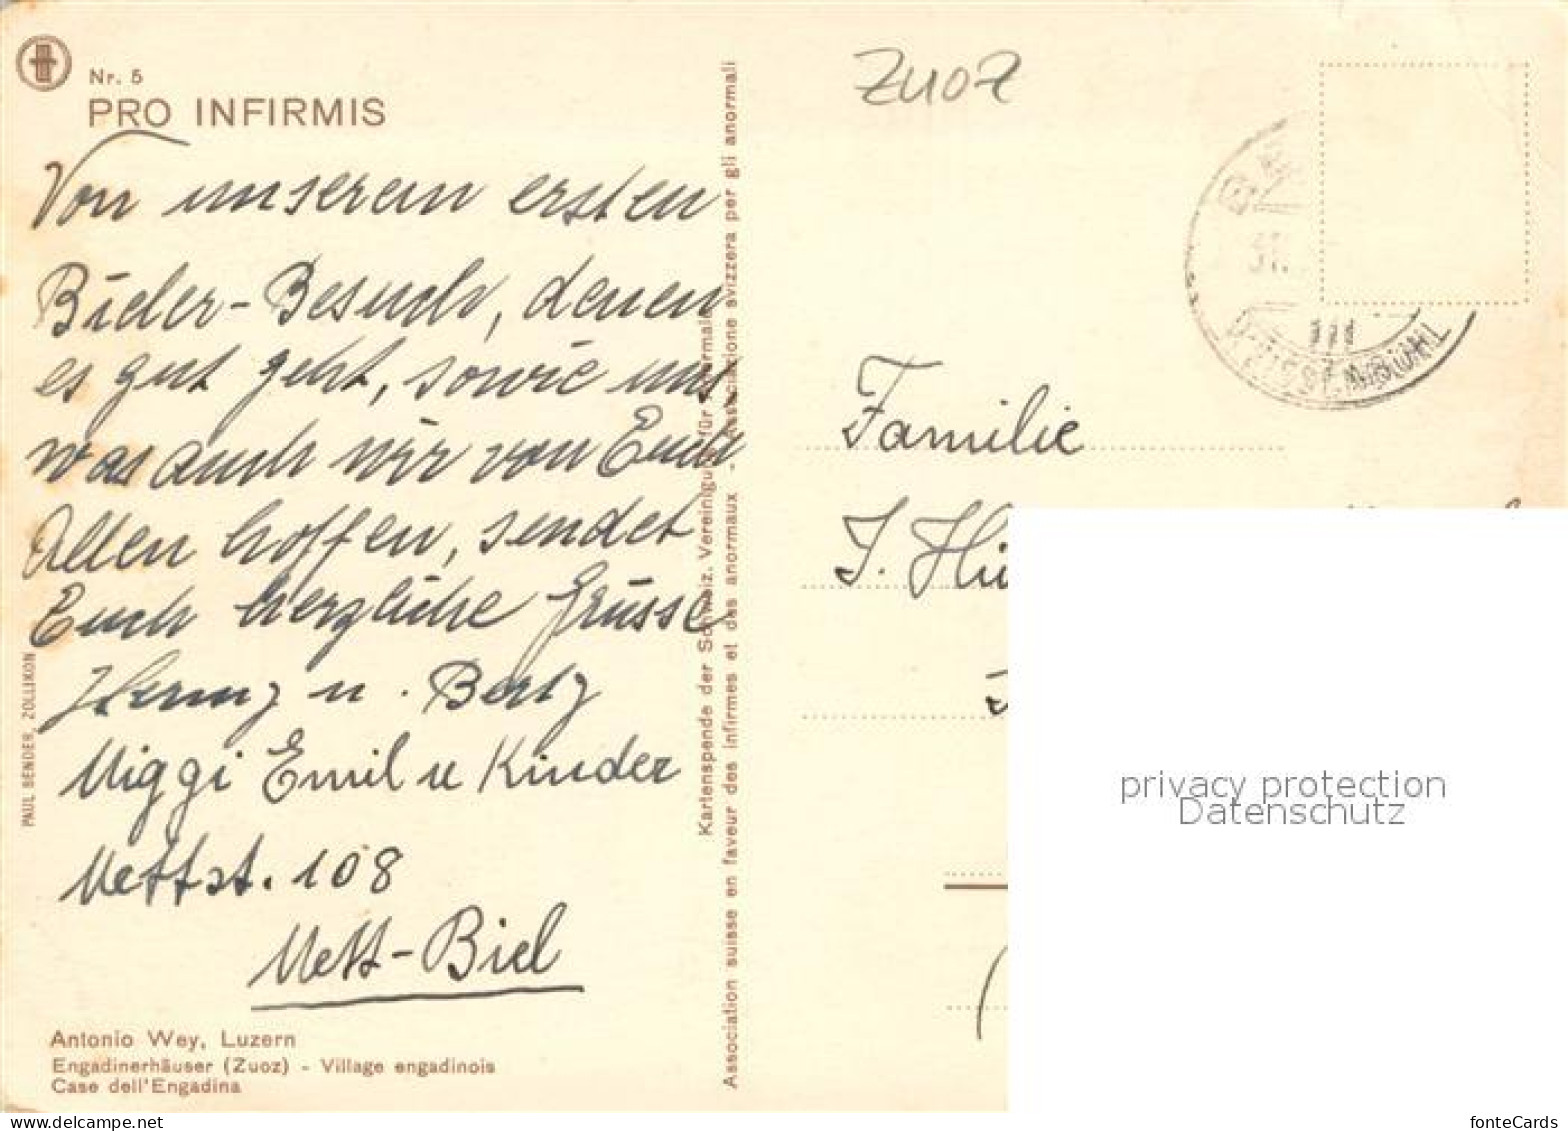 Nr. 5
PRO INFIRMIS
Von unserem ersten
Bieler-Besuch, denen
es gut geht, sowie uns
was auch wir von Euch
Allen hoffen, sendet
Euch herzliche Grüsse
u. Berty
Miggi Emil u Kinder
Mettst. 108
Mett-Biel
Antonio Wey, Luzern
Engadinerhäuser (Zuoz) - Village engadinois
Case dell'Engadina
PAUL BENDER, ZOLLIKON
Kartenspende der Schweiz. Vereinigung für Anormale
Association suisse en faveur des infirmes et des anormaux - Associazione svizzera per gli anormali
Zuoz
31.
III
Familie
J. Hü
privacy protection
Datenschutz
fonteCards